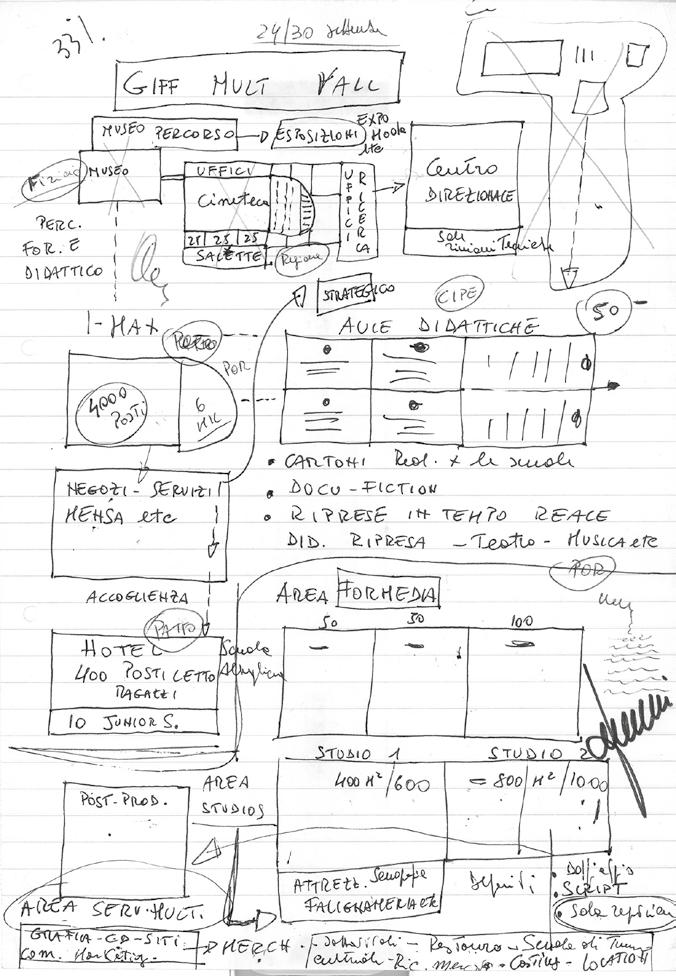 33%.
24/30 settembre
GIFF MULT VALL
MUSEO PERCORSO
ESPOSIZIONI
EXPO
MUSEO
UFFICI
Cineteca
25 25 25
SALETTE
UFFICI
RICERCA
Regione
Centro
DIREZIONALE
Sale
riunioni Tecniche
PERC.
FOR. E
DIDATTICO
STRATEGICO
CIPE
50
I-MAX
AULE DIDATTICHE
POR
4000
POSTI
6
MIL
• CARTONI Real. x le scuole
• DOCU-FICTION
• RIPRESE IN TEMPO REALE
DID. RIPRESA - Teatro - MUSICA etc
NEGOZI - SERVIZI
MENSA etc
POR
ACCOGLIENZA
AREA FORMEDIA
50 50 100
PATTO
HOTEL
400 POSTI LETTO
RAGAZZI
10 JUNIOR S.
Scuola
STUDIO 1 STUDIO 2
400 M²/600 = 800 M²/1000
POST-PROD.
AREA
STUDIOS
ATTREZZ. Scenografie
FALEGNAMERIA etc
Depositi
• Doppiaggio
• SCRIPT
• Sala
AREA SERV. MULT.
GRAFICA-CD-SITI
com. Marketing
MERCH.
Restauro - Scuola di
culturali - Ric. - Casting - LOCATION